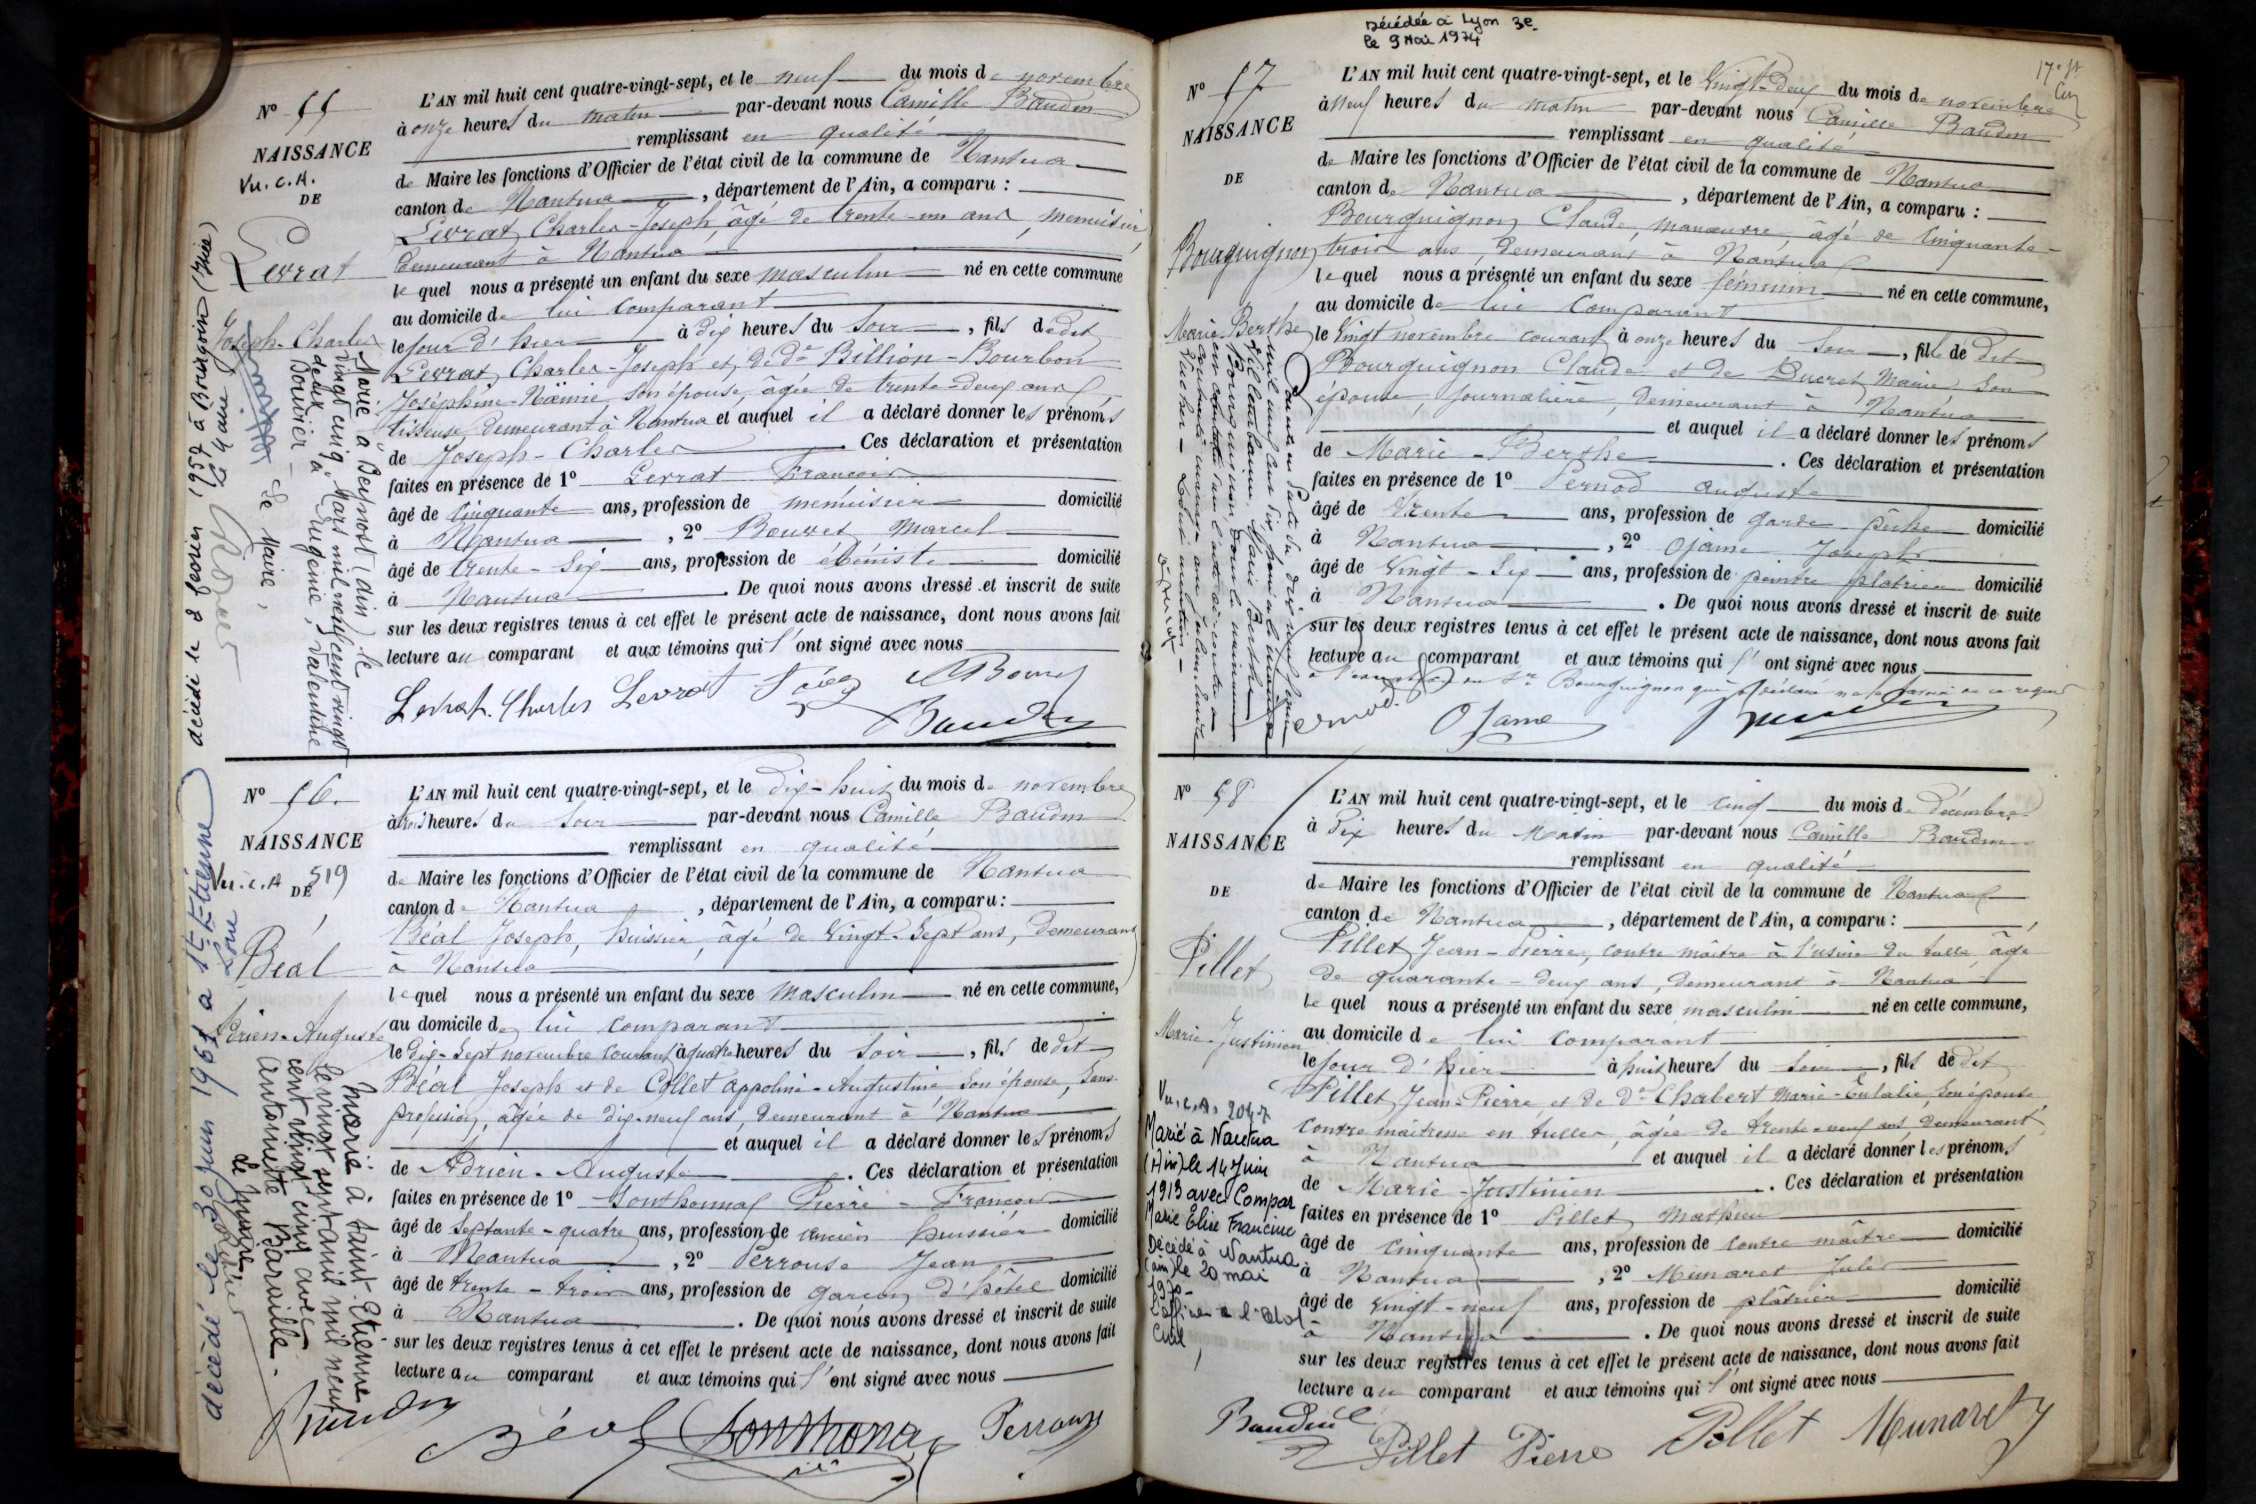 N° 55
NAISSANCE
Vu. C.A.
DE
Levrat
Joseph-Charles
Marié à Belmont (ain) le
vingt cinq Mars mil neuf cent vingt
deux à Eugénie, Valentine
Bouvier –
Le Maire,
décédé le 8 février 1957 à Bourgoin (Isère)
Le Maire
L'AN mil huit cent quatre-vingt-sept, et le neuf du mois de novembre
à onze heures du matin par-devant nous Camille Baudin
remplissant en qualité
de Maire les fonctions d'Officier de l'état civil de la commune de Nantua
canton de Nantua, département de l'Ain, a comparu :
Levrat Charles-Joseph, âgé de trente-un ans, menuisier,
demeurant à Nantua
lequel nous a présenté un enfant du sexe masculin né en cette commune
au domicile de lui comparant
le jour d'hier à dix heures du soir, fils de dit
Levrat Charles-Joseph et de de Billion-Bourbon
Joséphine-Noëmie, son épouse, âgée de trente-deux ans,
tisseuse, demeurant à Nantua et auquel il a déclaré donner les prénoms
de Joseph-Charles. Ces déclaration et présentation
faites en présence de 1° Levrat François
âgé de cinquante ans, profession de menuisier domicilié
à Nantua, 2° Bouvet Marcel
âgé de trente-six ans, profession de ébéniste domicilié
à Nantua. De quoi nous avons dressé et inscrit de suite
sur les deux registres tenus à cet effet le présent acte de naissance, dont nous avons fait
lecture au comparant et aux témoins qui l'ont signé avec nous
Levrat. Charles Levrat Bouvet
Baudin
N° 56.
NAISSANCE
Vu. C.A 519
DE
Béal
Adrien-Auguste
Marié à Saint-Etienne
le vingt sept avril mil neuf
cent vingt cinq avec
Antoinette Baraille.
Le Maire,
décédé le 30 juin 1961 à St-Etienne
Loire
L'AN mil huit cent quatre-vingt-sept, et le dix-huit du mois de novembre
à trois heures du soir par-devant nous Camille Baudin
remplissant en qualité
de Maire les fonctions d'Officier de l'état civil de la commune de Nantua
canton de Nantua, département de l'Ain, a comparu :
Béal Joseph, huissier, âgé de vingt-sept ans, demeurant
à Nantua
lequel nous a présenté un enfant du sexe masculin né en cette commune,
au domicile de lui comparant
le dix-sept novembre courant à quatre heures du soir, fils de dit
Béal Joseph et de Collet Appoline-Augustine son épouse, sans
profession, âgée de dix-neuf ans, demeurant à Nantua
et auquel il a déclaré donner les prénoms
de Adrien-Auguste. Ces déclaration et présentation
faites en présence de 1° Sonthonnax Pierre-François
âgé de septante-quatre ans, profession de ancien huissier domicilié
à Nantua, 2° Perrouse Jean
âgé de trente-trois ans, profession de garçon d'hôtel domicilié
à Nantua. De quoi nous avons dressé et inscrit de suite
sur les deux registres tenus à cet effet le présent acte de naissance, dont nous avons fait
lecture au comparant et aux témoins qui l'ont signé avec nous
Baudin Béal Sonthonax Perrouse
Décédée à Lyon 3e
le 9 Mai 1974
N° 57
NAISSANCE
DE
Bourguignon
Marie-Berthe
L'AN mil huit cent quatre-vingt-sept, et le vingt-deux du mois de novembre
à neuf heures du matin par-devant nous Camille Baudin
remplissant en qualité
de Maire les fonctions d'Officier de l'état civil de la commune de Nantua
canton de Nantua, département de l'Ain, a comparu :
Bourguignon Claude, manœuvre, âgé de cinquante-
trois ans, demeurant à Nantua
lequel nous a présenté un enfant du sexe féminin né en cette commune,
au domicile de lui comparant
le vingt novembre courant à onze heures du soir, fille de dit
Bourguignon Claude et de Ducret Marie son
épouse journalière, demeurant à Nantua
et auquel il a déclaré donner les prénoms
de Marie-Berthe. Ces déclaration et présentation
faites en présence de 1° Pernod Auguste
âgé de trente ans, profession de garde-pêche domicilié
à Nantua, 2° Ojame Joseph
âgé de vingt-six ans, profession de peintre plâtrier domicilié
à Nantua. De quoi nous avons dressé et inscrit de suite
sur les deux registres tenus à cet effet le présent acte de naissance, dont nous avons fait
lecture au comparant et aux témoins qui l'ont signé avec nous
Pernod. Ojame Baudin
N° 58
NAISSANCE
DE
Pillet
Marie-Justinien
Vu. C.A. 2047
Marié à Nantua
(Ain) le 14 Juin
1913 avec Compar
Marie Élise Francine
Décédé à Nantua
(ain) le 20 mai
1970 –
L'officier de l'état
Civil,
L'AN mil huit cent quatre-vingt-sept, et le cinq du mois de décembre
à dix heures du matin par-devant nous Camille Baudin
remplissant en qualité
de Maire les fonctions d'Officier de l'état civil de la commune de Nantua
canton de Nantua, département de l'Ain, a comparu :
Pillet Jean-Pierre, contre maître à l'usine de tulle, âgé
de quarante-deux ans, demeurant à Nantua
lequel nous a présenté un enfant du sexe masculin né en cette commune,
au domicile de lui comparant
le jour d'hier à huit heures du soir, fils de dit
Pillet Jean-Pierre et de de Chabert Marie-Eulalie, son épouse
contre maîtresse en tulles, âgée de trente-neuf ans demeurant
à Nantua et auquel il a déclaré donner les prénoms
de Marie-Justinien. Ces déclaration et présentation
faites en présence de 1° Pillet Mathieu
âgé de cinquante ans, profession de contre maître domicilié
à Nantua, 2° Munaret Jules
âgé de vingt-neuf ans, profession de plâtrier domicilié
à Nantua. De quoi nous avons dressé et inscrit de suite
sur les deux registres tenus à cet effet le présent acte de naissance, dont nous avons fait
lecture au comparant et aux témoins qui l'ont signé avec nous
Baudin Pillet Pierre Pillet Munaret